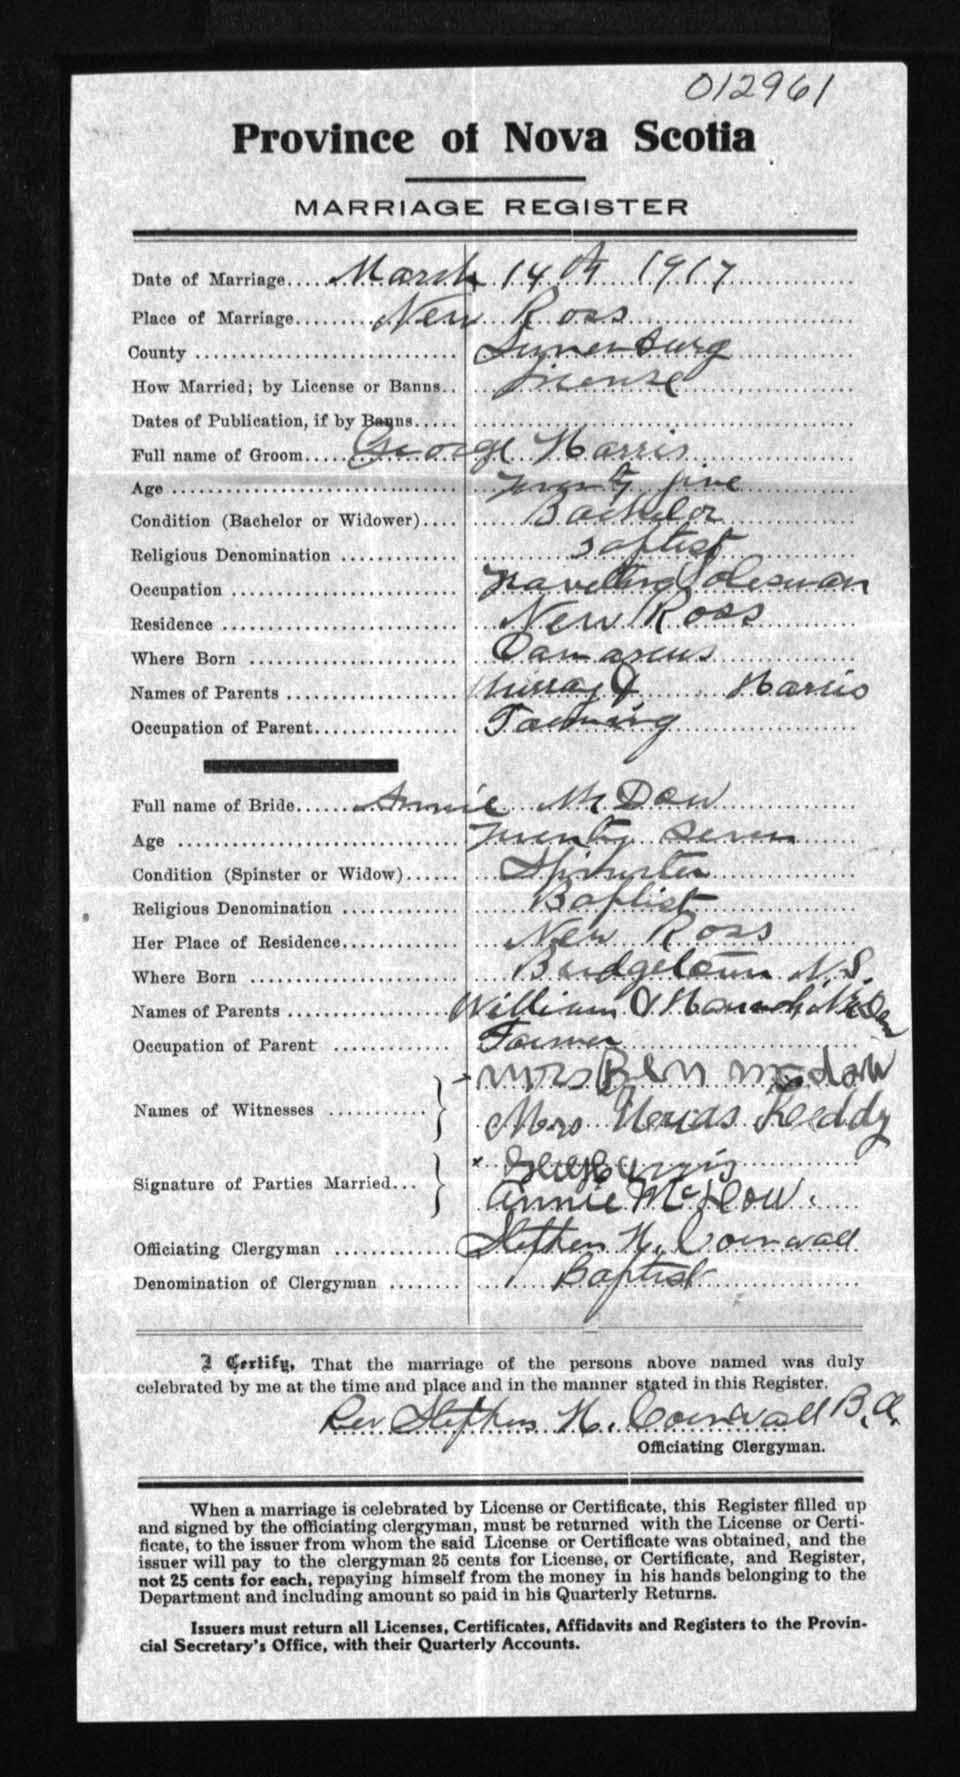 012961
Province of Nova Scotia
MARRIAGE REGISTER
Date of Marriage..... March 14th 1917
Place of Marriage....... New Ross
County .......................... Lunenburg
How Married; by License or Banns.. License
Dates of Publication, if by Banns.....
Full name of Groom..... George Harris
Age .............................. Twenty five
Condition (Bachelor or Widower).... Bachelor
Religious Denomination ............ Baptist
Occupation ....................... Travelling Salesman
Residence ........................ New Ross
Where Born ..................... Damascus
Names of Parents ................. Murray J Harris
Occupation of Parent............... Farming
Full name of Bride...... Annie McDow
Age .............................. Twenty Seven
Condition (Spinster or Widow)...... Spinster
Religious Denomination ............ Baptist
Her Place of Residence............. New Ross
Where Born ..................... Bridgetown N.S.
Names of Parents ................. William &
Occupation of Parent ............. Farmer
Mrs Ben McDow
Names of Witnesses ...........
Mrs Reddy
Signature of Parties Married...
Annie McDow.
Officiating Clergyman ............ Stephen H. Cornwall
Denomination of Clergyman ........ Baptist
I Certify, That the marriage of the persons above named was duly
celebrated by me at the time and place and in the manner stated in this Register.
Rev Stephen H. Cornwall B.A.
Officiating Clergyman.
When a marriage is celebrated by License or Certificate, this Register filled up
and signed by the officiating clergyman, must be returned with the License or Certi-
ficate, to the issuer from whom the said License or Certificate was obtained, and the
issuer will pay to the clergyman 25 cents for License, or Certificate, and Register,
not 25 cents for each, repaying himself from the money in his hands belonging to the
Department and including amount so paid in his Quarterly Returns.
Issuers must return all Licenses, Certificates, Affidavits and Registers to the Provin-
cial Secretary's Office, with their Quarterly Accounts.